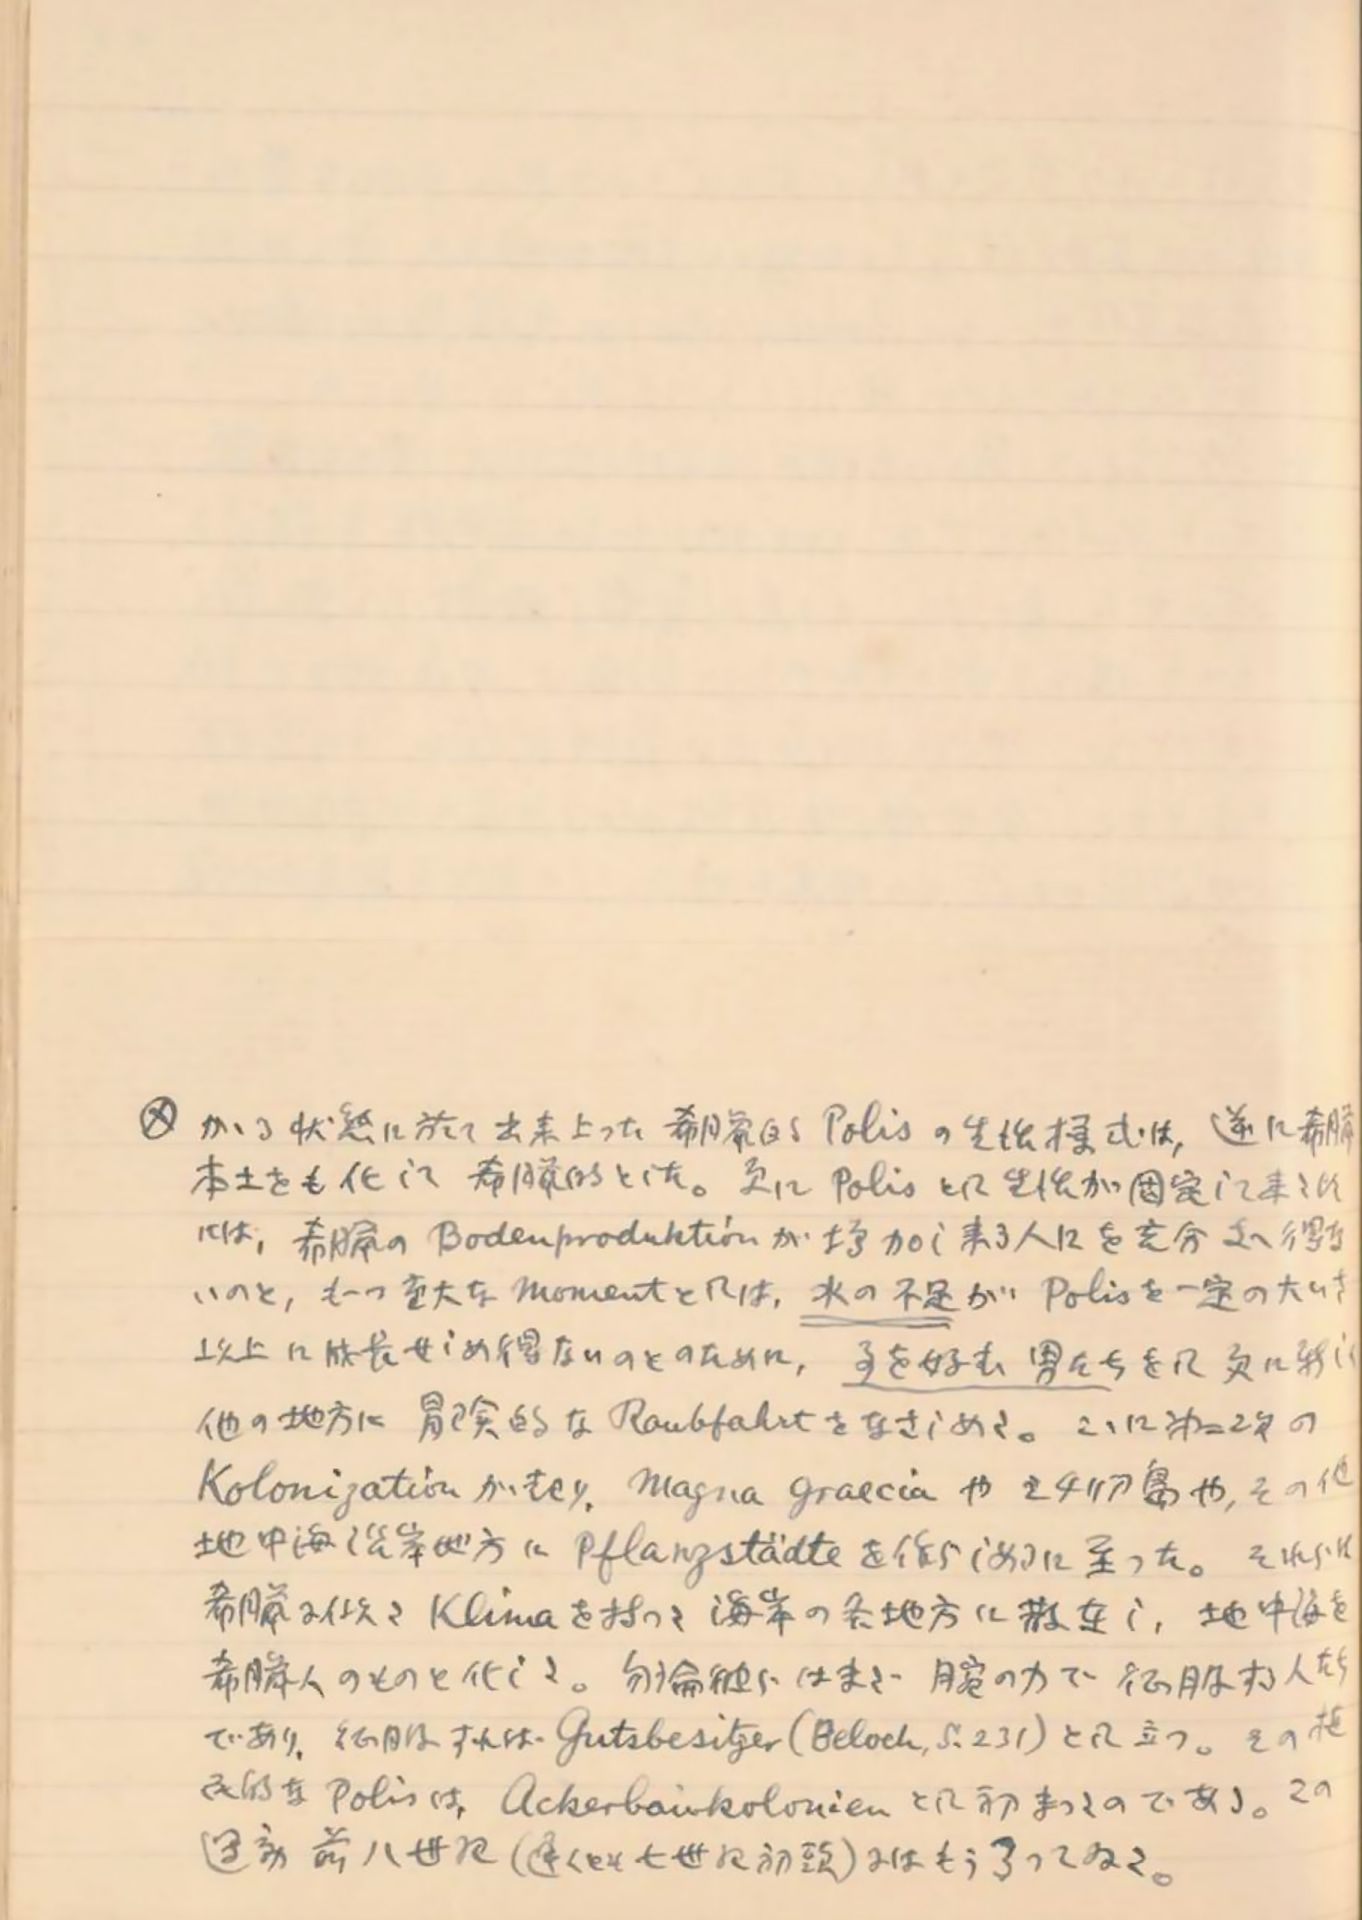 ⓧ かゝる状態に於て出来上った希臘的 Polis の生活様式は, 逆に希臘
本土をも化して希臘的とした。更に Polis として生活が固定して来た
には, 希臘の Bodenproduktion が増加し来る人口を充分支へ得な
いのと, も一つ重大な Moment としては, 水の不足が Polis を一定の大いさ
以上に成長せしめ得ないのとのために, を好む男たちをして更に新しく
他の地方に冒険的な Raubfahrt をなさしめた。こゝに第二次の
Kolonization が起り, Magna Graecia やシチリア島や, その他
地中海沿岸地方に Pflanzstädte を作らしめるに至った。それらは
希臘に似た Klima を持った海岸の各地方に散在し, 地中海を
希臘人のものと化した。勿論彼らはまだ腕の力で征服する人たち
であり, 征服すれば Gutsbesitzer (Beloch, S. 231) として立つ。その植
民的な Polis は, Ackerbaukolonien として初まったのである。この
運動前八世紀 (遅くとも七世紀初頭) にはもう了ってゐた。